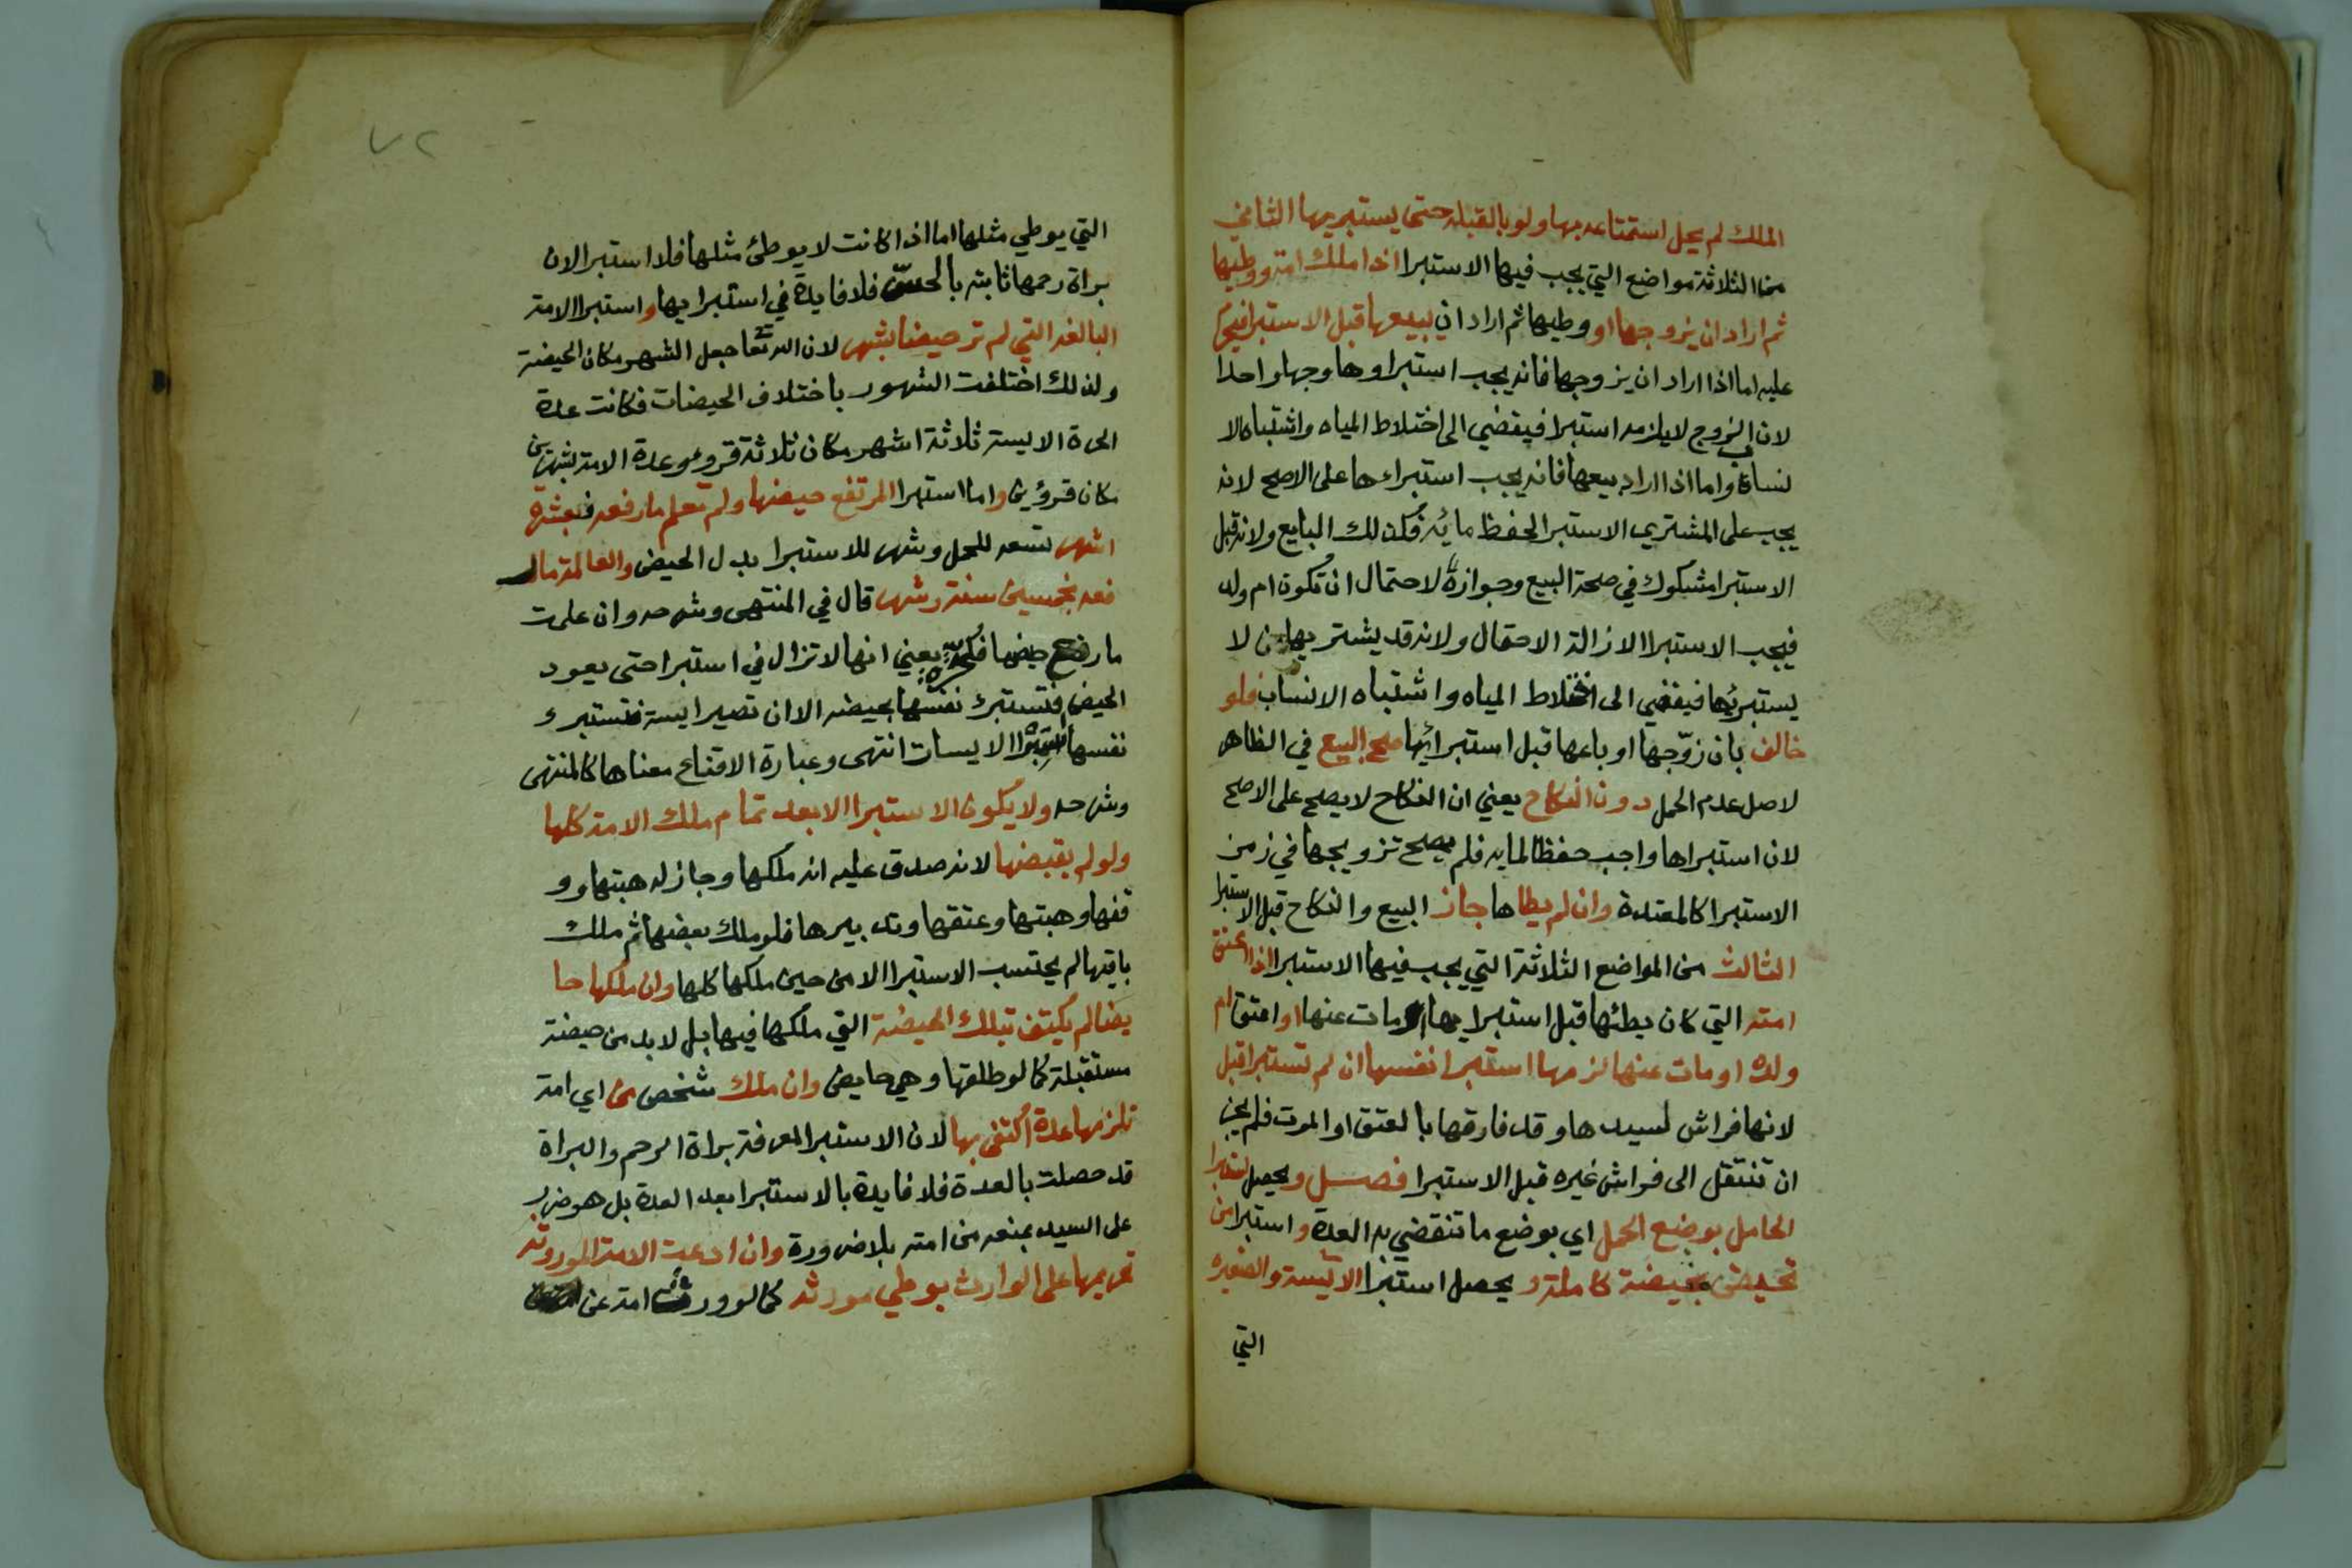 الملك لم يحل استمتاعه بها ولو بالقبلة حتى يستبريها الثاني
من الثلاثة مواضع التي يجب فيها الاستبرا اذا ملك امة ووطيها
ثم اراد ان يزوجها او وطيها ثم اراد ان يبيعها قبل الاستبرا فيحرم
عليه اما اذا اراد ان يزوجها فانه يجب استبراوها وجها واحدا
لان الزوج لا يلزمه استبرا فيفضي الى اختلاط المياه واشتباه الا
نساب واما اذا اراد بيعها فانه يجب استبراءها على الاصح لانه
يجب على المشتري الاستبرا لحفظ مائه فكذلك البايع ولانه قبل
الاستبرا مشكوك في صحة البيع وجوازه لاحتمال ان تكون ام ولد
فيجب الاستبرا لازالة الاحتمال ولانه قد يشتريها من لا
يستبريها فيفضي الى اختلاط المياه واشتباه الانساب فلو
خالف بان زوّجها او باعها قبل استبرائها صح البيع في الظاهر
لاصل عدم الحمل دون النكاح يعني ان النكاح لا يصح على الاصح
لان استبراها واجب حفظا لمايه فلم يصح تزويجها في زمن
الاستبرا كالمعتدة وان لم يطاها جاز البيع والنكاح قبل الاستبرا
الثالث من المواضع الثلاثة التي يجب فيها الاستبرا اذا اعتق
امته التي كان يطئها قبل استبرايها او مات عنها او اعتق ام
ولده او مات عنها لزمها استبرا نفسها ان لم تستبرا قبل
لانها فراش لسيدها وقد فارقها بالعتق او الموت فلم يجز
ان تنتقل الى فراش غيره قبل الاستبرا فصل ويحصل استبرا
الحامل بوضع الحمل اي بوضع ما تنقضي به العدة واستبرا من
تحيض بحيضة كاملة ويحصل استبرا الآئيسة والصغيرة
التي
٧٢
التي يوطي مثلها اما اذا كانت لا يوطئ مثلها فلا استبرا لان
براة رحمها ثابتة بالحس فلا فايدة في استبرايها واستبرا الامة
البالغه التي لم تر حيضا بشهر لان الله تعا جعل الشهر مكان الحيضة
ولذلك اختلفت الشهور باختلاف الحيضات فكانت عدة
الحرة الايسة ثلاثة اشهر مكان ثلاثة قروء وعدة الامة شهرين
مكان قرؤين واما استبرا المرتفع حيضها ولم تعلم ما رفعه فبعشرة
اشهر تسعه للحمل وشهر للاستبرا بدل الحيض والعالمة ما ر
فعه بخمسين سنة وشهر قال في المنتهى وشرحه وان علمت
ما رفع حيضها فكحرة يعني انها لا تزال في استبرا حتى يعود
الحيض فتستبرئ نفسها بحيضه الا ان تصير ايسة فتستبرئ
نفسها استبرا الايسات انتهى وعبارة الاقناع معناها كالمنتهى
وشرحه ولا يكون الاستبرا الا بعد تمام ملك الامة كلها
ولو لم يقبضها لانه صدق عليه انه ملكها وجاز له هبتها وو
قفها وهبتها وعتقها وتدبيرها فلو ملك بعضها ثم ملك
باقيها لم يحتسب الاستبرا الا من حين ملكها كلها وان ملكها حا
يضا لم يكتف بتلك الحيضة التي ملكها فيها بل لا بد من حيضة
مستقبلة كما لو طلقها وهي حايض وان ملك شخص من اي امة
تلزمها عدة اكتفى بها لان الاستبرا لمعرفة براة الرحم والبراة
قد حصلت بالعدة فلا فايدة بالاستبرا بعد العدة بل هو ضرر
على السيد بمنعه من امته بلا ضرورة وان ادعت الامة الموروثة
تحريمها على الوارث بوطي مورثه كما لو ورث امة عن